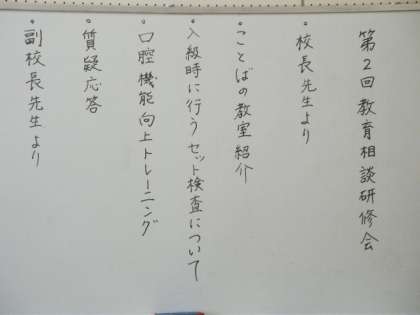 第2回教育相談研修会
・校長先生より
・ことばの教室紹介
・入級時に行うセット検査について
・口腔機能向上トレーニング
・質疑応答
・副校長先生より